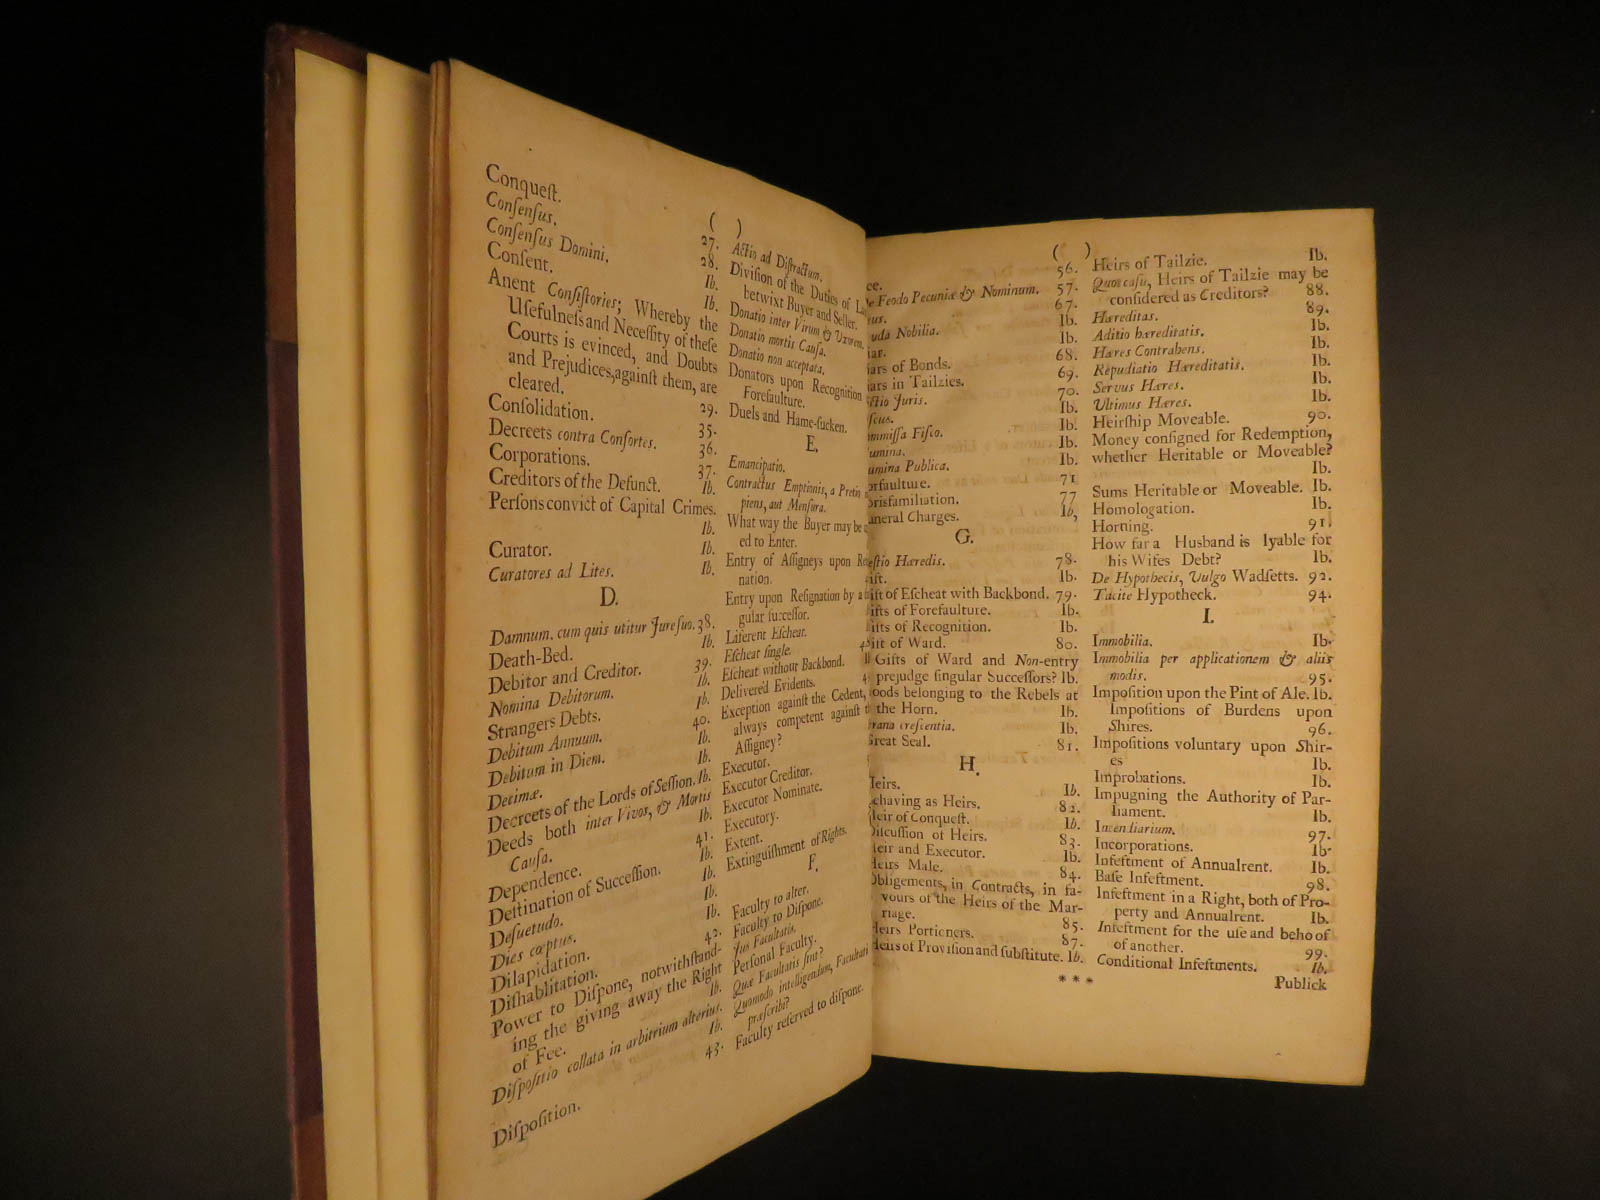 ( )
Conqueſt. 27.
Conſenſus. 28.
Conſenſus Domini. Ib.
Conſent. Ib.
Anent Conſiſtories; Whereby the
Uſefulneſs and Neceſſity of theſe
Courts is evinced, and Doubts
and Prejudices, againſt them, are
cleared. 29.
Conſolidation. 35.
Decreets contra Conſortes. 36.
Corporations. 37.
Creditors of the Defunct. Ib.
Perſons convict of Capital Crimes.
Ib.
Curator. Ib.
Curatores ad Lites. Ib.
D.
Damnum, cum quis utitur Jure ſuo. 38.
Death-Bed. Ib.
Debitor and Creditor. 39.
Nomina Debitorum. Ib.
Strangers Debts. Ib.
Debitum Annuum. 40.
Debitum in Diem. Ib.
Decimæ. Ib.
Decreets of the Lords of Seſſion. Ib.
Deeds both inter Vivos, & Mortis
Cauſa. Ib.
Dependence. 41.
Deſtination of Succeſſion. Ib.
Deſuetudo. Ib.
Dies cœptus. Ib.
Dilapidation. Ib.
Diſhabilitation. 42.
Power to Diſpone, notwithſtand-
ing the giving away the Right
of Fee. Ib.
Diſpoſitio collata in arbitrium alterius.
Ib.
43.
Diſpoſition.
Actio ad Diſtractum.
Diviſion of the Duties of
betwixt Buyer and Seller.
Donatio inter Virum & Uxorem.
Donatio mortis Cauſa.
Donatio non acceptata.
Donators upon Recognition
Forefaulture.
Duels and Hame-ſucken.
E.
Emancipatio.
Contractus Emptionis, a
piens, aut Menſura.
What way the Buyer may be
ed to Enter.
Entry of Aſſigneys upon
nation.
Entry upon Reſignation by a
gular ſucceſſor.
Liferent Eſcheat.
Eſcheat ſingle.
Eſcheat without Backbond.
Delivered Evidents.
Exception againſt the Cedent,
always competent againſt
Aſſigney?
Executor.
Executor Creditor.
Executor Nominate.
Executory.
Extent.
Extinguiſhment of Rights.
F.
Faculty to alter.
Faculty to Diſpone.
Jus Facultatis.
Perſonal Faculty.
Quæ Facultatis ſint?
Quomodo intelligendum,
præſcribi?
Faculty reſerved to diſpone.
( )
56.
Feodo Pecuniæ & Nominum. 57.
67.
Nobilia. Ib.
Ib.
of Bonds. 68.
in Tailzies. 69.
Juris. 70.
Ib.
Fiſco. Ib.
Ib.
Publica. Ib.
71
77
Charges. Ib,
G.
Hæredis. 78.
Ib.
of Eſcheat with Backbond. 79.
of Forefaulture. Ib.
of Recognition. Ib.
of Ward. 80.
Gifts of Ward and Non-entry
prejudge ſingular Succeſſors? Ib.
belonging to the Rebels at
the Horn. Ib.
creſcentia. Ib.
Great Seal. 81.
H.
Heirs. Ib.
Behaving as Heirs. 82.
Heir of Conqueſt. Ib.
Diſcuſſion of Heirs. 83.
Heir and Executor. Ib.
Heirs Male. 84.
Obligements, in Contracts, in fa-
vours of the Heirs of the Mar-
riage. 85.
Heirs Portioners. 87.
Heirs of Proviſion and ſubſtitute. Ib.
* * *
Heirs of Tailzie. Ib.
Quo caſu, Heirs of Tailzie may be
conſidered as Creditors? 88.
Hæreditas. 89.
Aditio hæreditatis. Ib.
Hæres Contrahens. Ib.
Repudiatio Hæreditatis. Ib.
Servus Hæres. Ib.
Ultimus Hæres. Ib.
Heirſhip Moveable. 90.
Money conſigned for Redemption,
whether Heritable or Moveable?
Ib.
Sums Heritable or Moveable. Ib.
Homologation. Ib.
Horning. 91.
How far a Husband is lyable for
his Wifes Debt? Ib.
De Hypothecis, Vulgo Wadſetts. 92.
Tacite Hypotheck. 94.
I.
Immobilia. Ib.
Immobilia per applicationem & aliis
modis. 95.
Impoſition upon the Pint of Ale. Ib.
Impoſitions of Burdens upon
Shires. 96.
Impoſitions voluntary upon Shir-
es Ib.
Improbations. Ib.
Impugning the Authority of Par-
liament. Ib.
Incendiarium. 97.
Incorporations. Ib.
Infeftment of Annualrent. Ib.
Baſe Infeftment. 98.
Infeftment in a Right, both of Pro-
perty and Annualrent. Ib.
Infeftment for the uſe and behoof
of another. 99.
Conditional Infeftments. Ib.
Publick